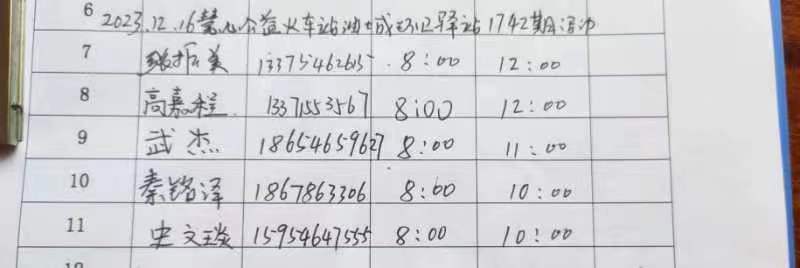 6 2023.12.16 公益火车站 驿站1742期活动
7 张振美 13375462615 8:00 12:00
8 高嘉程 1331553567 8:00 12:00
9 武杰 18654659627 8:00 11:00
10 秦铭泽 1867863306 8:00 10:00
11 史文琰 15954647555 8:00 10:00